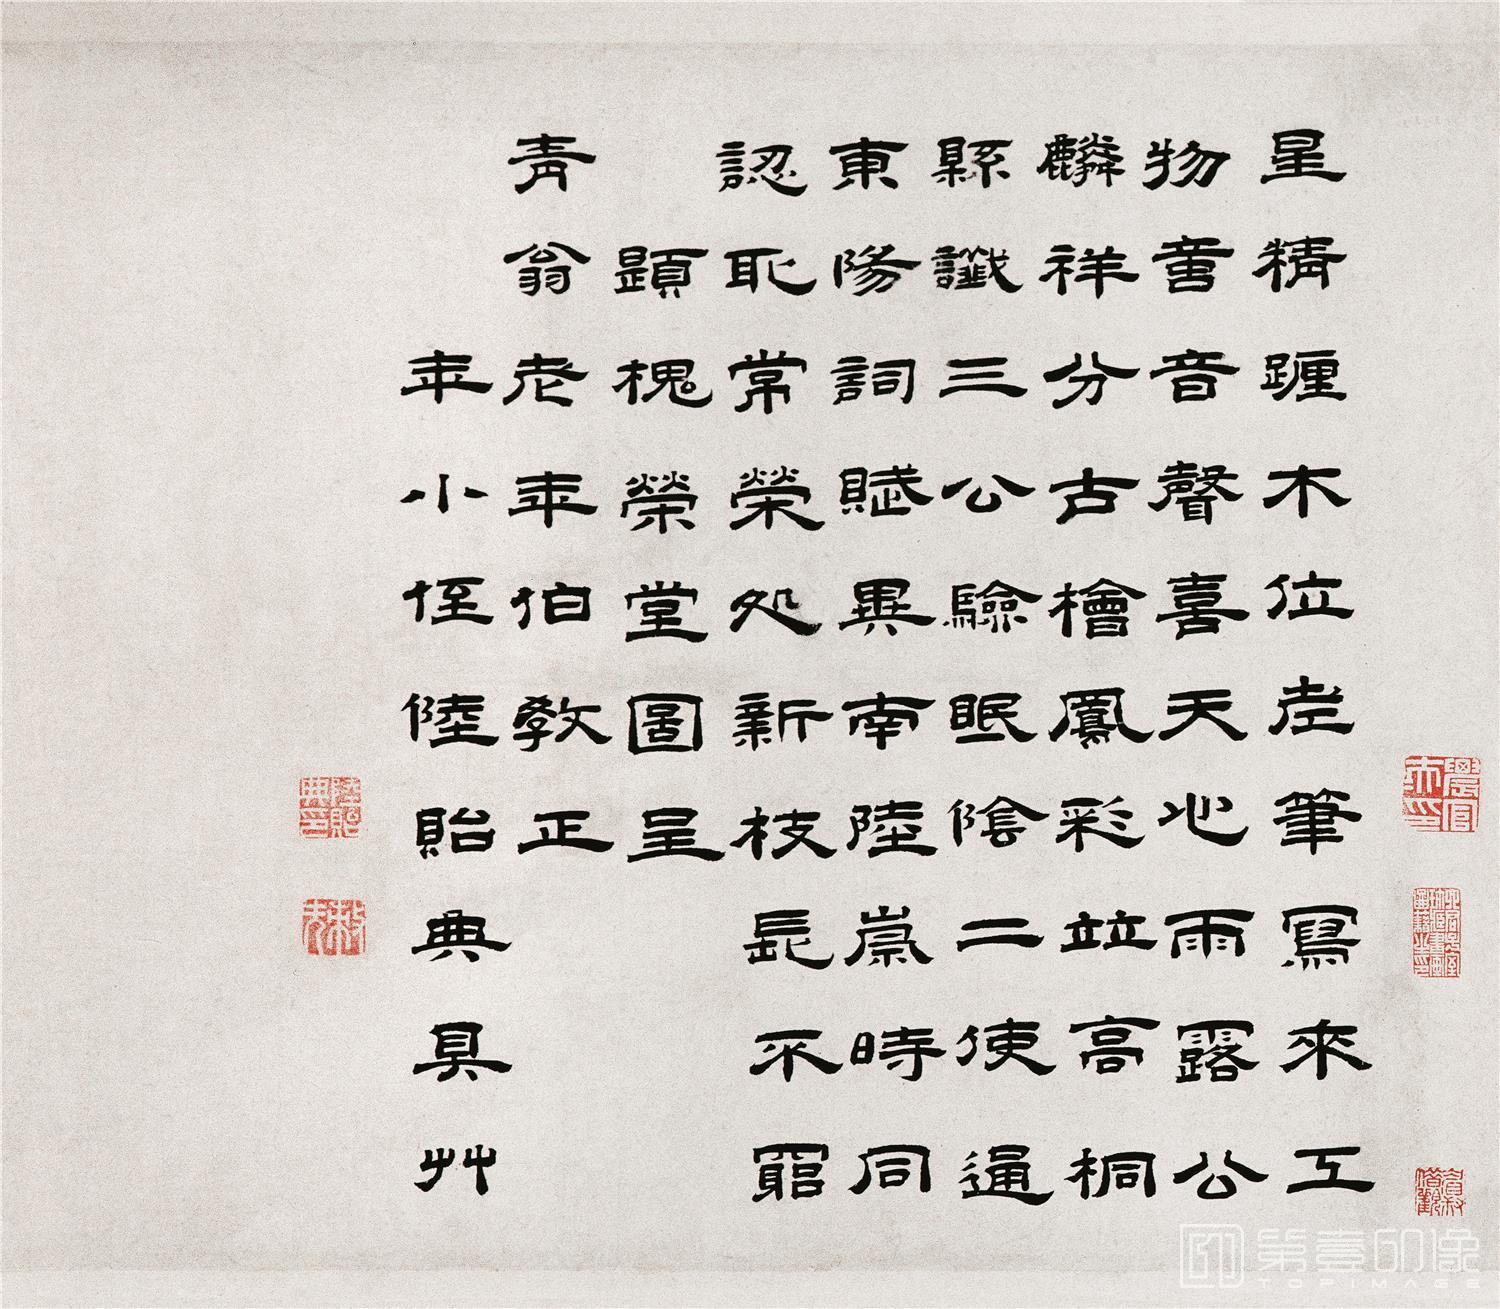 星精躔木位老筆寫來工
物音聲喜天心雨露公
麟祥分古檜鳳彩竝高桐
縣讖三公驗眠陰二使通
東陽詞賦異南陸崇時同
認取常榮処新枝長不窮
題槐榮堂圖呈
青翁老年伯教正
年小侄陸貽典具艸
陸貽典印
敕先
第壹印像
TOPIMAGE